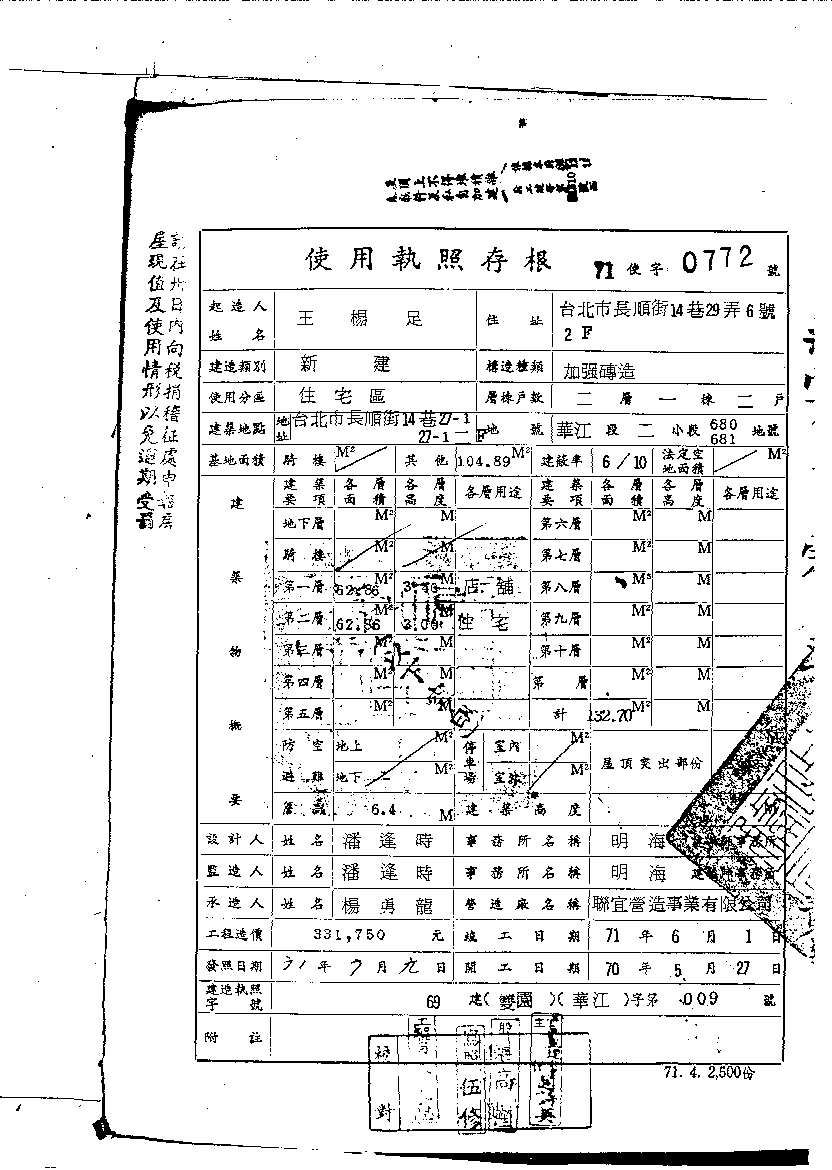 使用執照存根 71 使字 0772 號
起造人姓名 王楊足 住址 台北市長順街14巷29弄6號2F
建造類別 新建 構造種類 加强磚造
使用分區 住宅區 層棟戶數 二層一棟二戶
建築地點 地址 台北市長順街14巷27-1 27-1二F 地號 華江段二小段680 681地號
基地面積 騎樓 M² 其他 104.89M² 建蔽率 6/10 法定空地面積 M²
建築物概要
建築要項 各層面積 各層高度 各層用途 建築要項 各層面積 各層高度 各層用途
地下層 M² M 第六層 M² M
騎樓 M² M 第七層 M² M
第一層 M² M 店舖 第八層 M² M
第二層 M² 3.00 M 住宅 第九層 M² M
第三層 M² M 第十層 M² M
第四層 M² M 第層 M² M
第五層 M² M 計 132.70 M² M
防空避難 地上 M² 停車場 室內 M² 屋頂突出部份
地下 M² M²
簷高 6.4 M 建築高度
設計人 姓名 潘逢時 事務所名稱 明海
監造人 姓名 潘逢時 事務所名稱 明海
承造人 姓名 楊勇龍 營造廠名稱 聯宜營造事業有限公司
工程造價 331,750 元 竣工日期 71年6月1日
發照日期 71年7月九日 開工日期 70年5月27日
建造執照字號 69 建(雙園)(華江)字第 009 號
附註
校對
伍修
71.4.2,500份
屋現值及使用情形以免逾期受罰